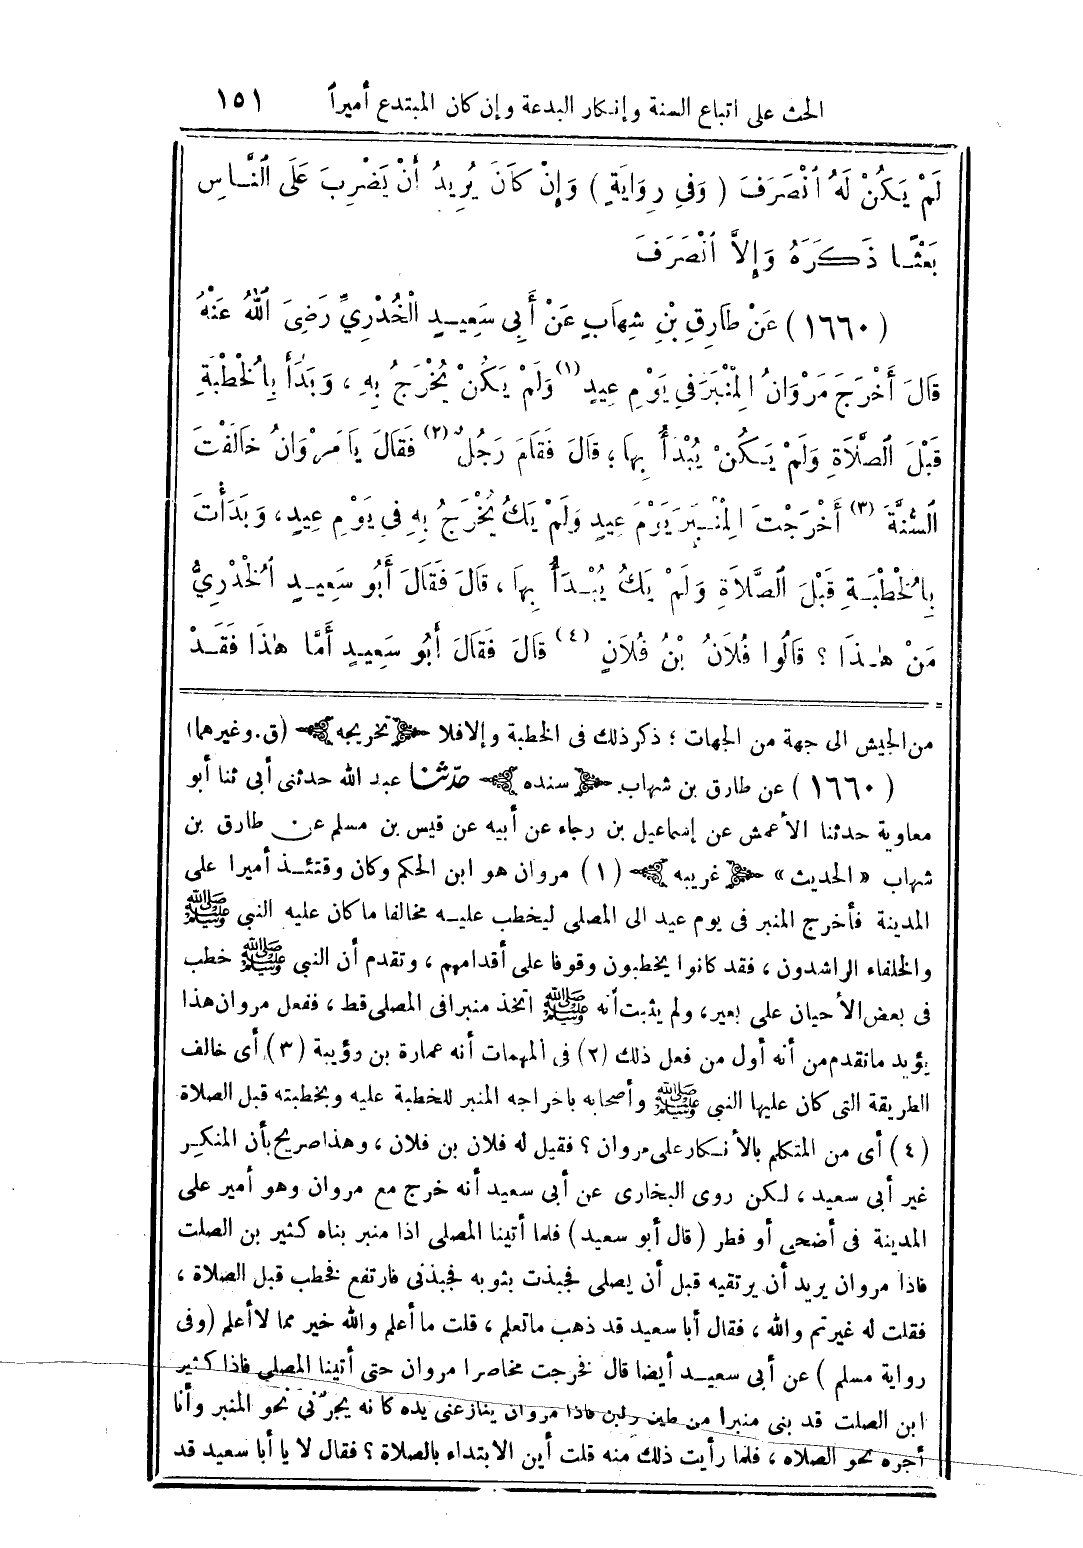 الحث على اتباع السنة وإنكار البدعة وإن كان المبتدع أميراً ١٥١
لَمْ يَكُنْ لَهُ ٱنْصَرَفَ (وَفِي رِوَايَةٍ) وَإِنْ كَانَ يُرِيدُ أَنْ يَضْرِبَ عَلَى ٱلنَّاسِ
بَعْثًا ذَكَرَهُ وَإِلاَّ ٱنْصَرَفَ
(١٦٦٠) عَنْ طَارِقِ بْنِ شِهَابٍ عَنْ أَبِي سَعِيدٍ الْخُدْرِيِّ رَضِيَ ٱللهُ عَنْهُ
قَالَ أَخْرَجَ مَرْوَانُ الْمِنْبَرَ فِي يَوْمِ عِيدٍ (١) وَلَمْ يَكُنْ يُخْرَجُ بِهِ ، وَبَدَأَ بِالْخُطْبَةِ
قَبْلَ ٱلصَّلاَةِ وَلَمْ يَكُنْ يُبْدَأُ بِهَا ؛ قَالَ فَقَامَ رَجُلٌ (٢) فَقَالَ يَا مَرْوَانُ خَالَفْتَ
ٱلسُّنَّةَ (٣) أَخْرَجْتَ الْمِنْبَرَ يَوْمَ عِيدٍ وَلَمْ يَكُ يُخْرَجُ بِهِ فِي يَوْمِ عِيدٍ ، وَبَدَأْتَ
بِالْخُطْبَةِ قَبْلَ ٱلصَّلاَةِ وَلَمْ يَكُ يُبْدَأُ بِهَا ، قَالَ فَقَالَ أَبُو سَعِيدٍ ٱلْخُدْرِيُّ
مَنْ هٰذَا ؟ قَالُوا فُلاَنُ بْنُ فُلاَنٍ (٤) قَالَ فَقَالَ أَبُو سَعِيدٍ أَمَّا هٰذَا فَقَدْ
من الجيش الى جهة من الجهات ؛ ذكر ذلك فى الخطبة وإلافلا ﴿ تخريجه ﴾ (ق. وغيرهما)
(١٦٦٠) عن طارق بن شهاب ﴿ سنده ﴾ حدّثنا عبد الله حدثنى أبى ثنا أبو
معاوية حدثنا الأعمش عن إسماعيل بن رجاء عن أبيه عن قيس بن مسلم عن طارق بن
شهاب «الحديث» ﴿ غريبه ﴾ (١) مروان هو ابن الحكم وكان وقتئذ أميرا على
المدينة فأخرج المنبر فى يوم عيد الى المصلى ليخطب عليه مخالفا ما كان عليه النبى ﷺ
والخلفاء الراشدون ، فقد كانوا يخطبون وقوفا على أقدامهم ، وتقدم أن النبى ﷺ خطب
فى بعض الأحيان على بعير، ولم يثبت أنه ﷺ اتخذ منبرا فى المصلى قط ، ففعل مروان هذا
يؤيد ماتقدم من أنه أول من فعل ذلك (٢) فى المهمات أنه عمارة بن رؤيبة (٣) أى خالف
الطريقة التى كان عليها النبى ﷺ وأصحابه باخراجه المنبر للخطبة عليه وبخطبته قبل الصلاة
(٤) أى من المتكلم بالأنكار على مروان ؟ فقيل له فلان بن فلان ، وهذا صريح بأن المنكر
غير أبى سعيد ، لكن روى البخارى عن أبى سعيد أنه خرج مع مروان وهو أمير على
المدينة فى أضحى أو فطر (قال أبو سعيد) فلما أتينا المصلى اذا منبر بناه كثير بن الصلت
فاذا مروان يريد أن يرتقيه قبل أن يصلى فجبذت بثوبه فجبذنى فارتفع فخطب قبل الصلاة ،
فقلت له غيرتم والله ، فقال أبا سعيد قد ذهب ماتعلم ، قلت ما أعلم والله خير مما لا أعلم (وفى
رواية مسلم) عن أبى سعيد أيضا قال فخرجت مخاصرا مروان حتى أتينا المصلى فاذا كثير
ابن الصلت قد بنى منبرا من طين ولبن فاذا مروان ينازعنى يده كأنه يجرّنى نحو المنبر وأنا
أجره نحو الصلاه ، فلما رأيت ذلك منه قلت أين الابتداء بالصلاة ؟ فقال لا يا أبا سعيد قد